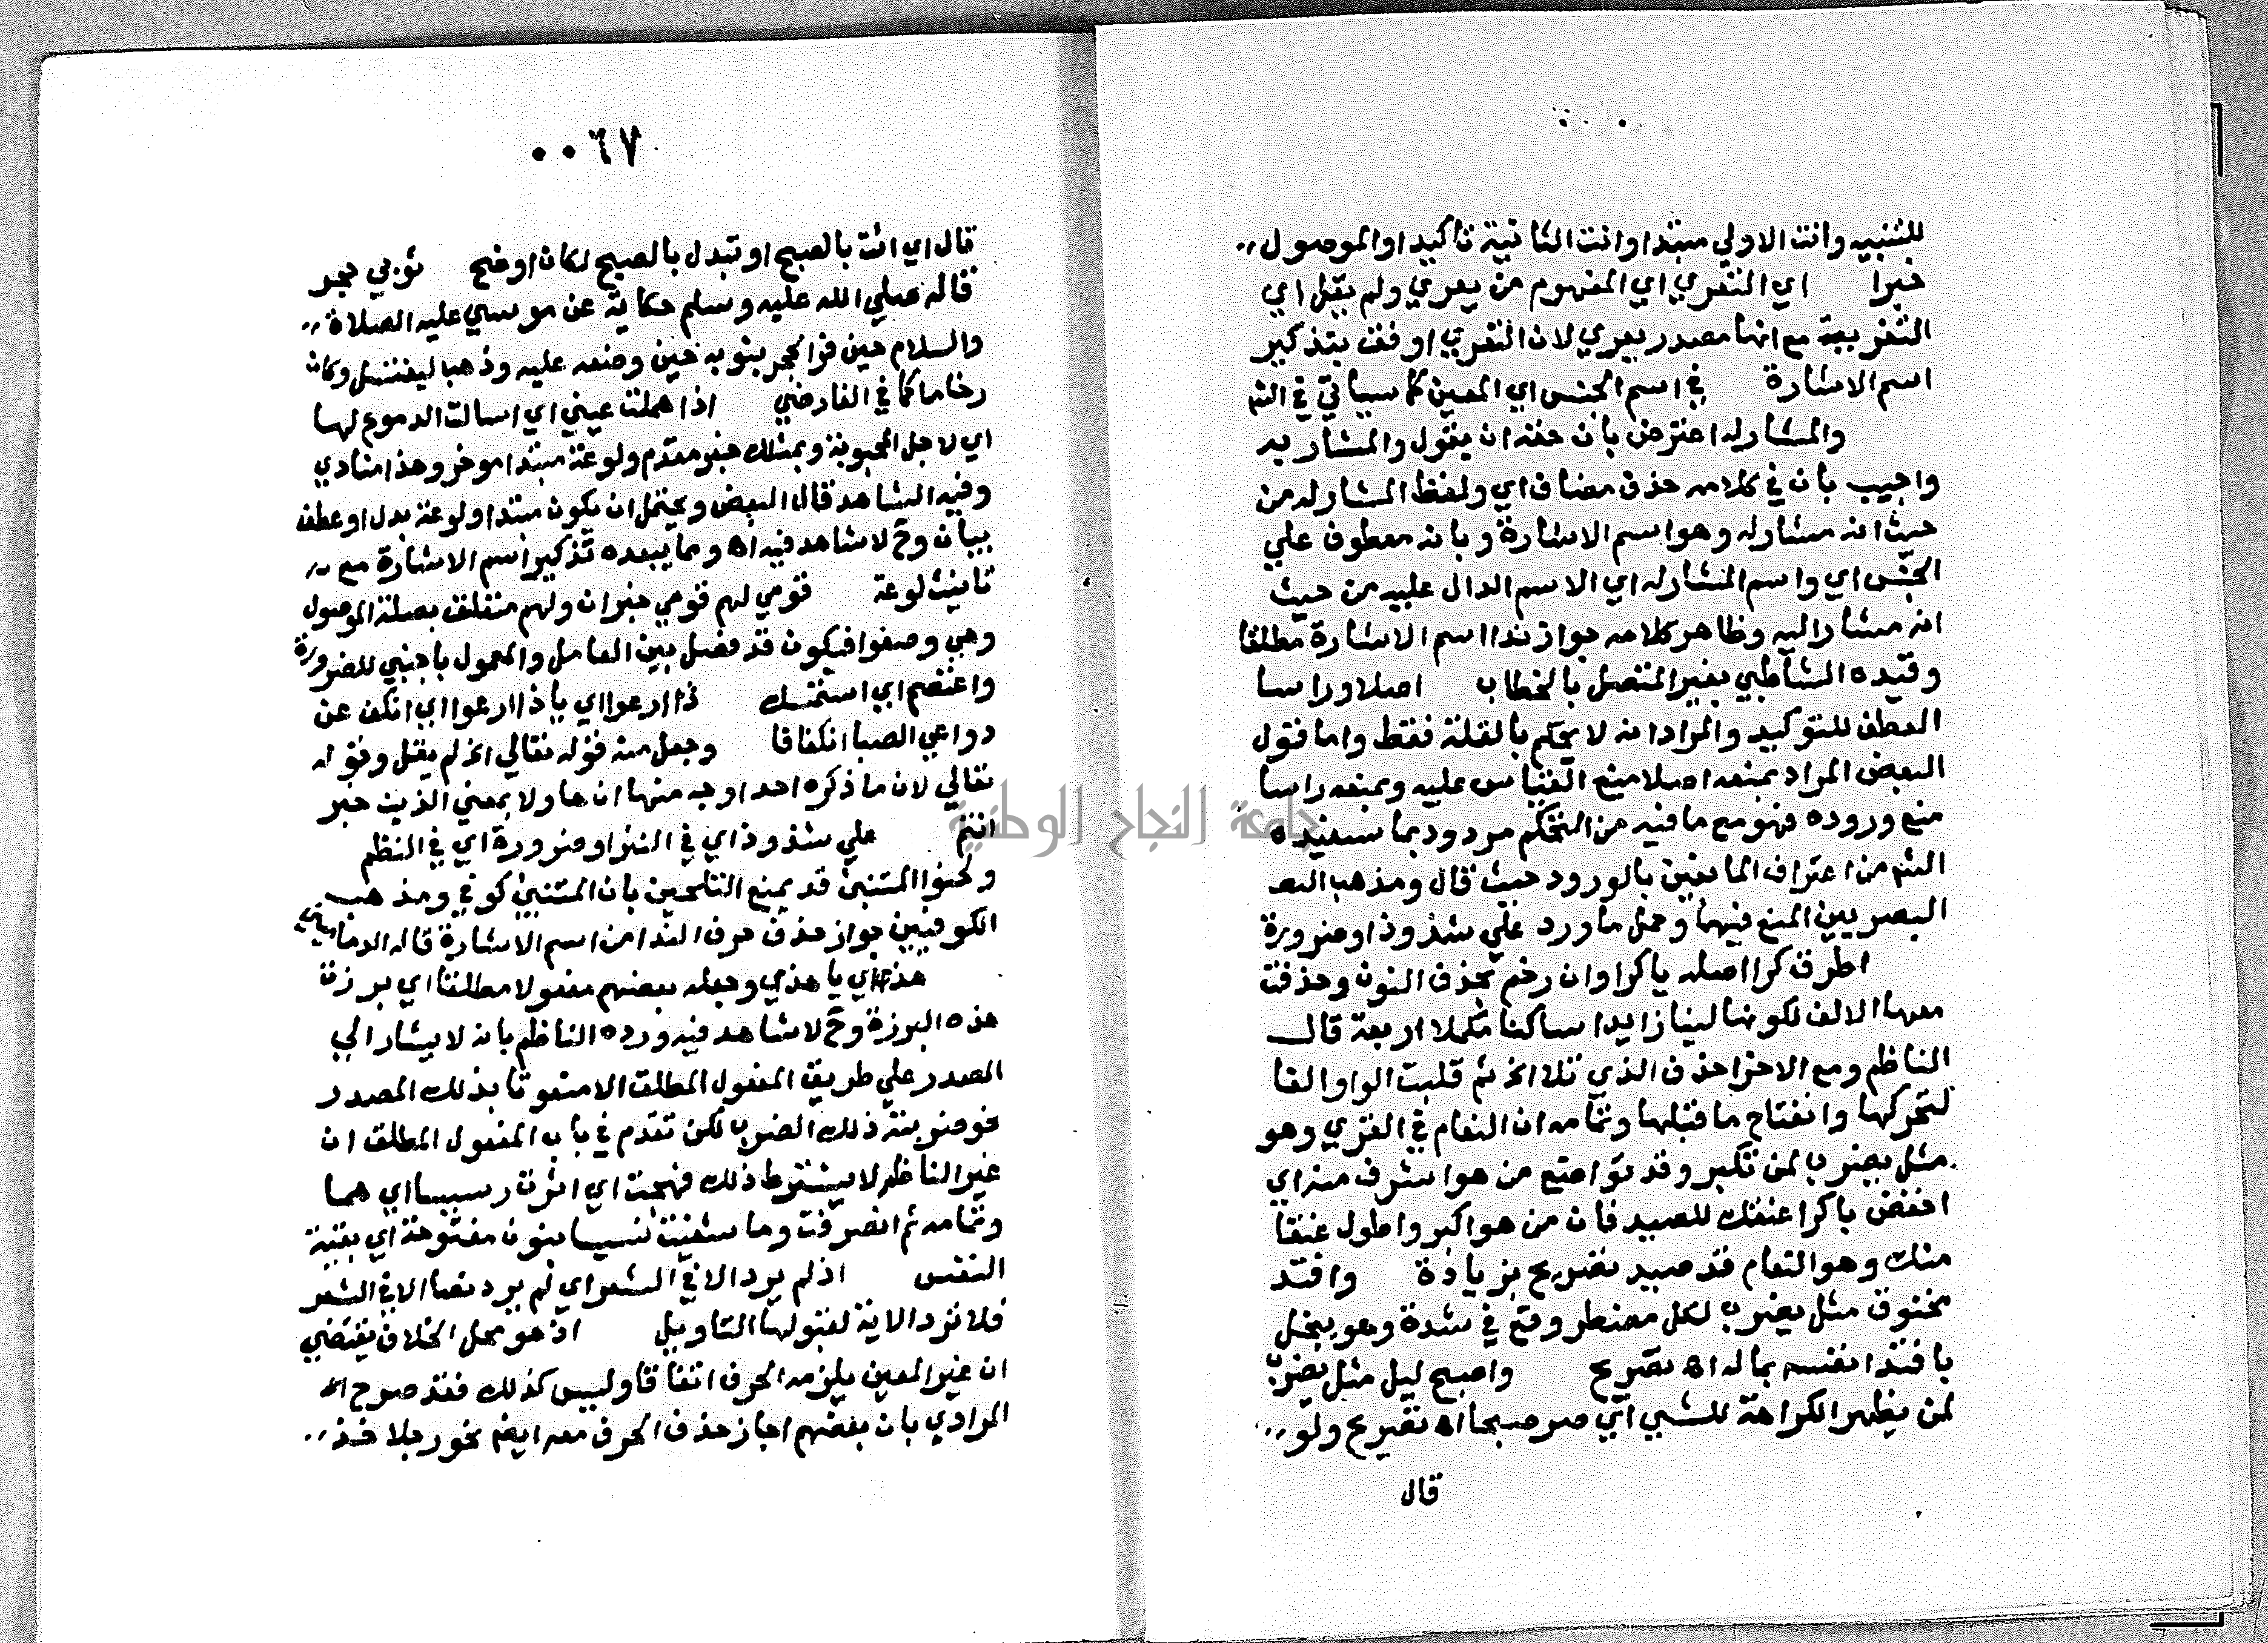 للتنبيه وانت الاولي مبتدا وانت الثانية تأكيد او الموصول
خبرا اي التعري اي المفهوم من يعري ولم يقل اي
التعرية مع انها مصدر يعري لان التعري اوفق بتذكير
اسم الاشارة في اسم الجنس اي المعين كما سيأتي في الش
والمشار له اعترض بأن حقه ان يقول والمشار به
واجيب بأن في كلامه حذف مضاف اي ولفظ المشار له من
حيث انه مشار له وهو اسم الاشارة وبانه معطوف علي
الجنس اي واسم المشار له اي الاسم الدال عليه من حيث
انه مشار اليه وظاهر كلامه جواز ندا اسم الاشارة مطلقا
وقيده الشاطبي بغير المتصل بالخطاب اصلا وراسا
العطف للتوكيد والمراد انه لا يحكم بالقلة فقط واما قول
البعض المراد بمنعه اصلا منع القياس عليه وبمنعه راسا
منع وروده فهو مع ما فيه من التحكم مردود بما ستفيده
الش من اعتراف المانعين بالورود حيث قال ومذهب البصـ
البصريين المنع فيهما وحمل ما ورد علي شذوذ او ضرورة
اطرق كرا اصله يا كراوان رخم بحذف النون وحذفت
معها الالف لكونها لينا زايدا ساكنا مكملا اربعة قال
الناظم ومع الاخر احذف الذي تلا الخ ثم قلبت الواو الفا
لتحركها وانفتاح ما قبلها وتمامه ان النعام في القري وهو
مثل يضرب لمن تكبر وقد تواضع من هو اشرف منه اي
اخفض يا كرا عنقك للصيد فان من هو اكبر واطول عنقا
منك وهو النعام قد صيد تصريح بزيادة وافتد
مخنوق مثل يضرب لكل مضطر وقع في شدة وهو يبخل
بافتدا نفسه بماله اهـ تصريح واصبح ليل مثل يضرب
لمن يظهر الكراهة للشي اي صر صبحا اهـ تصريح ولو
قال
٠٠٦٧
قال اي ائت بالصبح او تبدل بالصبح لكان اوضح ثوبي حجر
قاله صلي الله عليه وسلم حكاية عن موسي عليه الصلاة
والسلام حين فر الحجر بثوبه حين وضعه عليه وذهب ليغتسل وكان
رخاما كما في الفارضي اذا هملت عيني اي اسالت الدموع لها
اي لاجل المحبوبة وبمثلك خبر مقدم ولوعة مبتدا موخر وهذا منادي
وفيه الشاهد قال البعض ويحتمل ان يكون مبتدا ولوعة بدل او عطف
بيان وح لا شاهد فيه اهـ ومما يبعده تذكير اسم الاشارة مع
تانيث لوعة قومي لهم قومي خبر ان ولهم متعلق بصلة الموصول
وهي وصفوا فيكون قد فصل بين العامل والمعمول باجنبي للضرورة
واعتصم اي استمسك ذا ارعوا اي ياذا ارعوا اي انكف عن
دواعي الصبا انكفافا وجعل منه قوله تعالي الخ لم يقل وقوله
تعالي لان ما ذكره احد اوجه منها ان هاولا بمعني الذين خبر
انتم علي شذوذ اي في النثر او ضرورة اي في النظم
ولحنوا المتنبي قد يمنع التلحين بان المتنبي كوفي ومذهب
الكوفيين جواز حذف حرف الندا من اسم الاشارة قاله الدماميني
هذي اي يا هذي وجعله بعضهم مفعولا مطلقا اي برزت
هذه البرزة وح لا شاهد فيه ورده الناظم بانه لا يشار الي
المصدر علي طريق المفعول المطلق الا منعوتا بذلك المصدر
نحو ضربته ذلك الضرب لكن تقدم في باب المفعول المطلق ان
غير الناظم لا يشترط ذلك فهجت اي اثرت رسيسا اي هما
وتمامه ثم انصرفت وما شفيت نسيسا بنون مفتوحة اي بقية
النفس اذ لم يرد الا في الشعر اي لم يرد نصا الا في الشعر
فلا ترد الاية لقبولها التاويل اذ هو محل الخلاف يقتضي
ان غير المعين يلزمه الحرف اتفاقا وليس كذلك فقد صرح
المرادي بان بعضهم اجاز حذف الحرف معه ايضا نحو رجلا خذ
جامعة النجاح الوطنية